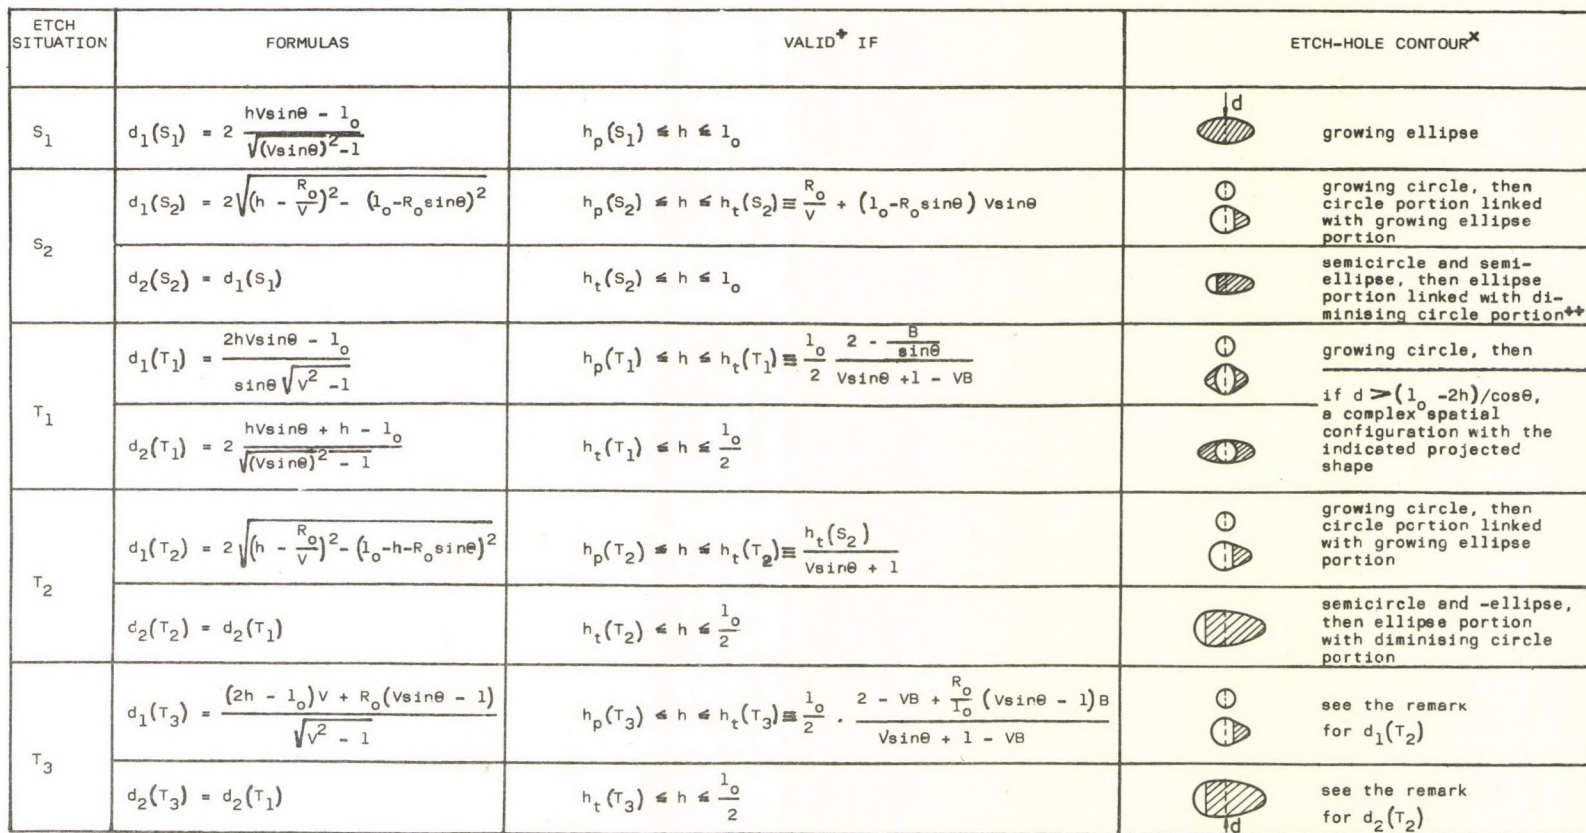 ETCH SITUATION | FORMULAS | VALID⁺ IF | ETCH-HOLE CONTOURˣ
S₁ | d₁(S₁) = 2 (hVsinθ - l₀) / √((Vsinθ)² -1) | h_p(S₁) ≤ h ≤ l₀ | d
growing ellipse
S₂ | d₁(S₂) = 2√((h - R₀/V)² - (l₀-R₀sinθ)²) | h_p(S₂) ≤ h ≤ h_t(S₂) ≡ R₀/V + (l₀-R₀sinθ) Vsinθ
growing circle, then
circle portion linked
with growing ellipse
portion
d₂(S₂) = d₁(S₁) | h_t(S₂) ≤ h ≤ l₀
semicircle and semi-
ellipse, then ellipse
portion linked with di-
minising circle portion⁺⁺
T₁ | d₁(T₁) = (2hVsinθ - l₀) / (sinθ √(V² -1)) | h_p(T₁) ≤ h ≤ h_t(T₁) ≡ l₀/2 (2 - B/sinθ) / (Vsinθ +1 - VB)
growing circle, then
d₂(T₁) = 2 (hVsinθ + h - l₀) / √((Vsinθ)² - 1) | h_t(T₁) ≤ h ≤ l₀/2
if d > (l₀ -2h)/cosθ,
a complex spatial
configuration with the
indicated projected
shape
T₂ | d₁(T₂) = 2√((h - R₀/V)² - (l₀-h-R₀sinθ)²) | h_p(T₂) ≤ h ≤ h_t(T₂) ≡ h_t(S₂) / (Vsinθ + 1)
growing circle, then
circle portion linked
with growing ellipse
portion
d₂(T₂) = d₂(T₁) | h_t(T₂) ≤ h ≤ l₀/2
semicircle and -ellipse,
then ellipse portion
with diminising circle
portion
T₃ | d₁(T₃) = ((2h - l₀)V + R₀(Vsinθ - 1)) / √(V² - 1) | h_p(T₃) ≤ h ≤ h_t(T₃) ≡ l₀/2 . (2 - VB + R₀/l₀ (Vsinθ - 1)B) / (Vsinθ + 1 - VB)
see the remark
for d₁(T₂)
d₂(T₃) = d₂(T₁) | h_t(T₃) ≤ h ≤ l₀/2
see the remark
for d₂(T₂)
d